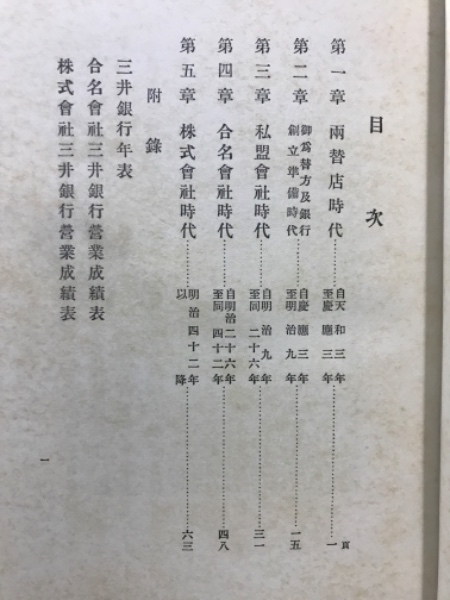 目次
第一章 兩替店時代………自天和三年至慶應三年………頁一
第二章 御爲替方及銀行創立準備時代………自慶應三年至明治九年………一五
第三章 私盟會社時代………自明治九年至同二十六年………三一
第四章 合名會社時代………自明治二十六年至同四十二年………四八
第五章 株式會社時代………明治四十二年以降………六三
附錄
三井銀行年表
合名會社三井銀行營業成績表
株式會社三井銀行營業成績表
一